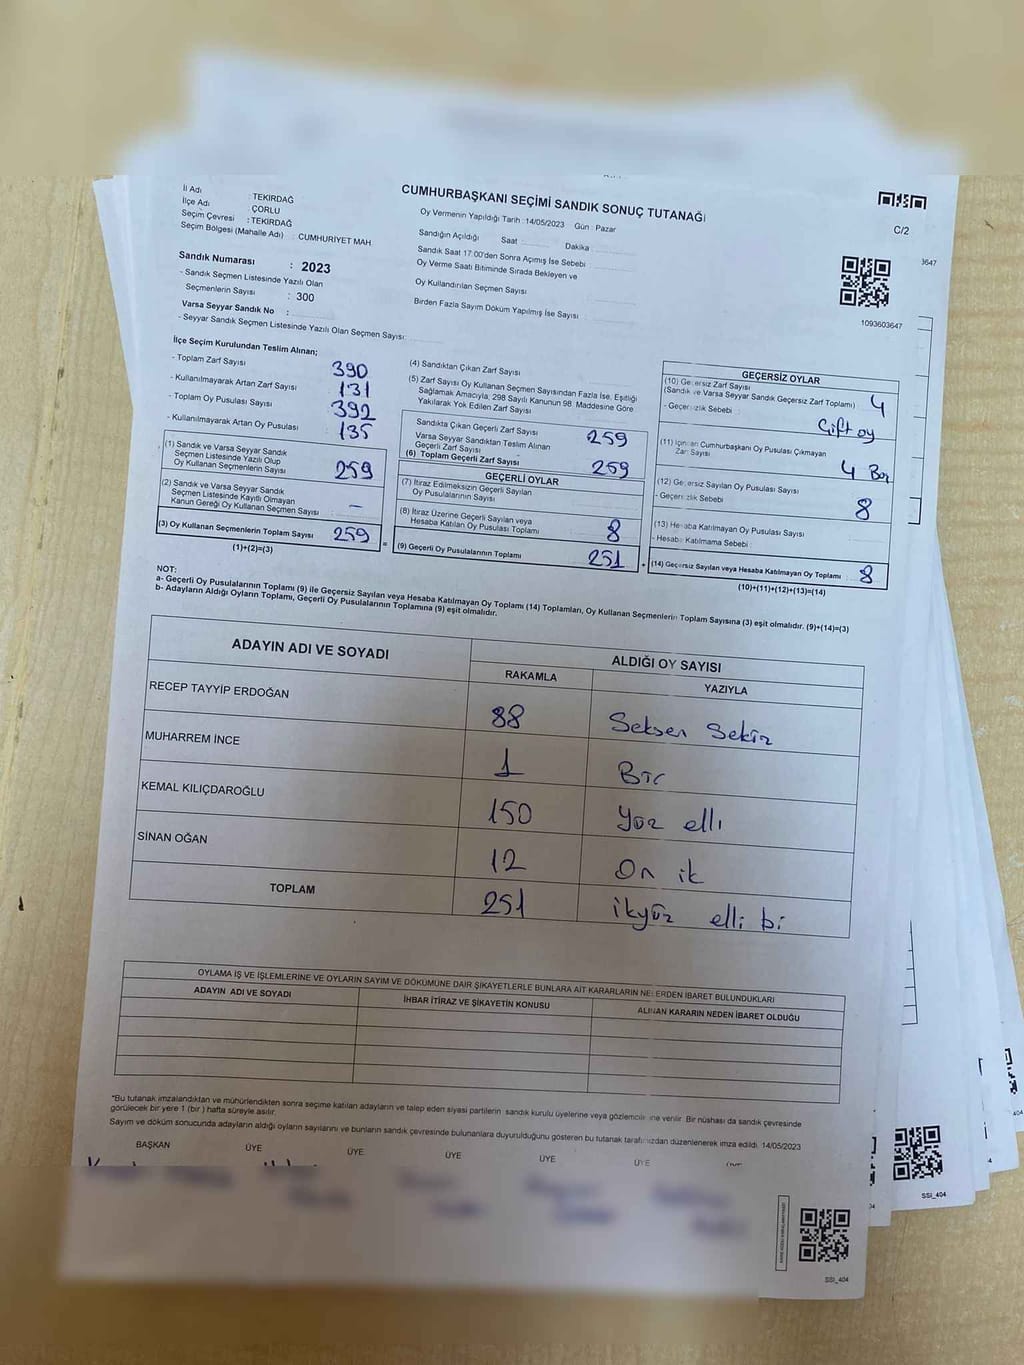 CUMHURBAŞKANI SEÇİMİ SANDIK SONUÇ TUTANAĞI
C/2
İl Adı : TEKİRDAĞ
İlçe Adı : ÇORLU
Seçim Çevresi : TEKİRDAĞ
Seçim Bölgesi (Mahalle Adı) : CUMHURİYET MAH
Sandık Numarası : 2023
- Sandık Seçmen Listesinde Yazılı Olan
Seçmenlerin Sayısı : 300
Varsa Seyyar Sandık No :
- Seyyar Sandık Seçmen Listesinde Yazılı Olan Seçmen Sayısı:
Oy Vermenin Yapıldığı Tarih : 14/05/2023 Gün : Pazar
Sandığın Açıldığı Saat Dakika
Sandık Saat 17:00'den Sonra Açımış İse Sebebi
Oy Verme Saati Bitiminde Sırada Bekleyen ve
Oy Kullandırılan Seçmen Sayısı
Birden Fazla Sayım Döküm Yapılmış İse Sayısı
3647
1093603647
İlçe Seçim Kurulundan Teslim Alınan;
- Toplam Zarf Sayısı 390
- Kullanılmayarak Artan Zarf Sayısı 131
- Toplam Oy Pusulası Sayısı 392
- Kullanılmayarak Artan Oy Pusulası 135
(1) Sandık ve Varsa Seyyar Sandık
Seçmen Listesinde Yazılı Olup
Oy Kullanan Seçmenlerin Sayısı 259
(2) Sandık ve Varsa Seyyar Sandık
Seçmen Listesinde Kayıtlı Olmayan
Kanun Gereği Oy Kullanan Seçmen Sayısı –
(3) Oy Kullanan Seçmenlerin Toplam Sayısı 259
(1)+(2)=(3)
=
(4) Sandıktan Çıkan Zarf Sayısı
(5) Zarf Sayısı Oy Kullanan Seçmen Sayısından Fazla İse, Eşitliği
Sağlamak Amacıyla, 298 Sayılı Kanunun 98. Maddesine Göre
Yakılarak Yok Edilen Zarf Sayısı
Sandıkta Çıkan Geçerli Zarf Sayısı 259
Varsa Seyyar Sandıktan Teslim Alınan
Geçerli Zarf Sayısı
(6) Toplam Geçerli Zarf Sayısı 259
GEÇERLİ OYLAR
(7) İtiraz Edilmeksizin Geçerli Sayılan
Oy Pusulalarının Sayısı
(8) İtiraz Üzerine Geçerli Sayılan veya
Hesaba Katılan Oy Pusulası Toplamı 8
(9) Geçerli Oy Pusulalarının Toplamı 251
+
GEÇERSİZ OYLAR
(10) Geçersiz Zarf Sayısı
(Sandık ve Varsa Seyyar Sandık Geçersiz Zarf Toplamı) 4
- Geçersizlik Sebebi : Çift oy
(11) İçinden Cumhurbaşkanı Oy Pusulası Çıkmayan
Zarf Sayısı 4 Boş
(12) Geçersiz Sayılan Oy Pusulası Sayısı
- Geçersizlik Sebebi 8
(13) Hesaba Katılmayan Oy Pusulası Sayısı
- Hesaba Katılmama Sebebi :
(14) Geçersiz Sayılan veya Hesaba Katılmayan Oy Toplamı 8
(10)+(11)+(12)+(13)=(14)
NOT:
a- Geçerli Oy Pusulalarının Toplamı (9) ile Geçersiz Sayılan veya Hesaba Katılmayan Oy Toplamı (14) Toplamları, Oy Kullanan Seçmenlerin Toplam Sayısına (3) eşit olmalıdır. (9)+(14)=(3)
b- Adayların Aldığı Oyların Toplamı, Geçerli Oy Pusulalarının Toplamına (9) eşit olmalıdır.
ADAYIN ADI VE SOYADI
ALDIĞI OY SAYISI
RAKAMLA YAZIYLA
RECEP TAYYİP ERDOĞAN 88 Seksen Sekiz
MUHARREM İNCE 1 Bir
KEMAL KILIÇDAROĞLU 150 Yüz elli
SİNAN OĞAN 12 On ik
TOPLAM 251 ikyüz elli bi
OYLAMA İŞ VE İŞLEMLERİNE VE OYLARIN SAYIM VE DÖKÜMÜNE DAİR ŞİKAYETLERLE BUNLARA AİT KARARLARIN NELERDEN İBARET BULUNDUKLARI
ADAYIN ADI VE SOYADI İHBAR İTİRAZ VE ŞİKAYETİN KONUSU ALINAN KARARIN NEDEN İBARET OLDUĞU
*Bu tutanak imzalandıktan ve mühürlendikten sonra seçime katılan adayların ve talep eden siyasi partilerin sandık kurulu üyelerine veya gözlemcilerine verilir. Bir nüshası da sandık çevresinde
görülecek bir yere 1 (bir) hafta süreyle asılır.
Sayım ve döküm sonucunda adayların aldığı oyların sayılarını ve bunların sandık çevresinde bulunanlara duyurulduğunu gösteren bu tutanak tarafımızdan düzenlenerek imza edildi. 14/05/2023
BAŞKAN ÜYE ÜYE ÜYE ÜYE ÜYE
SSİ_404
SSİ_404